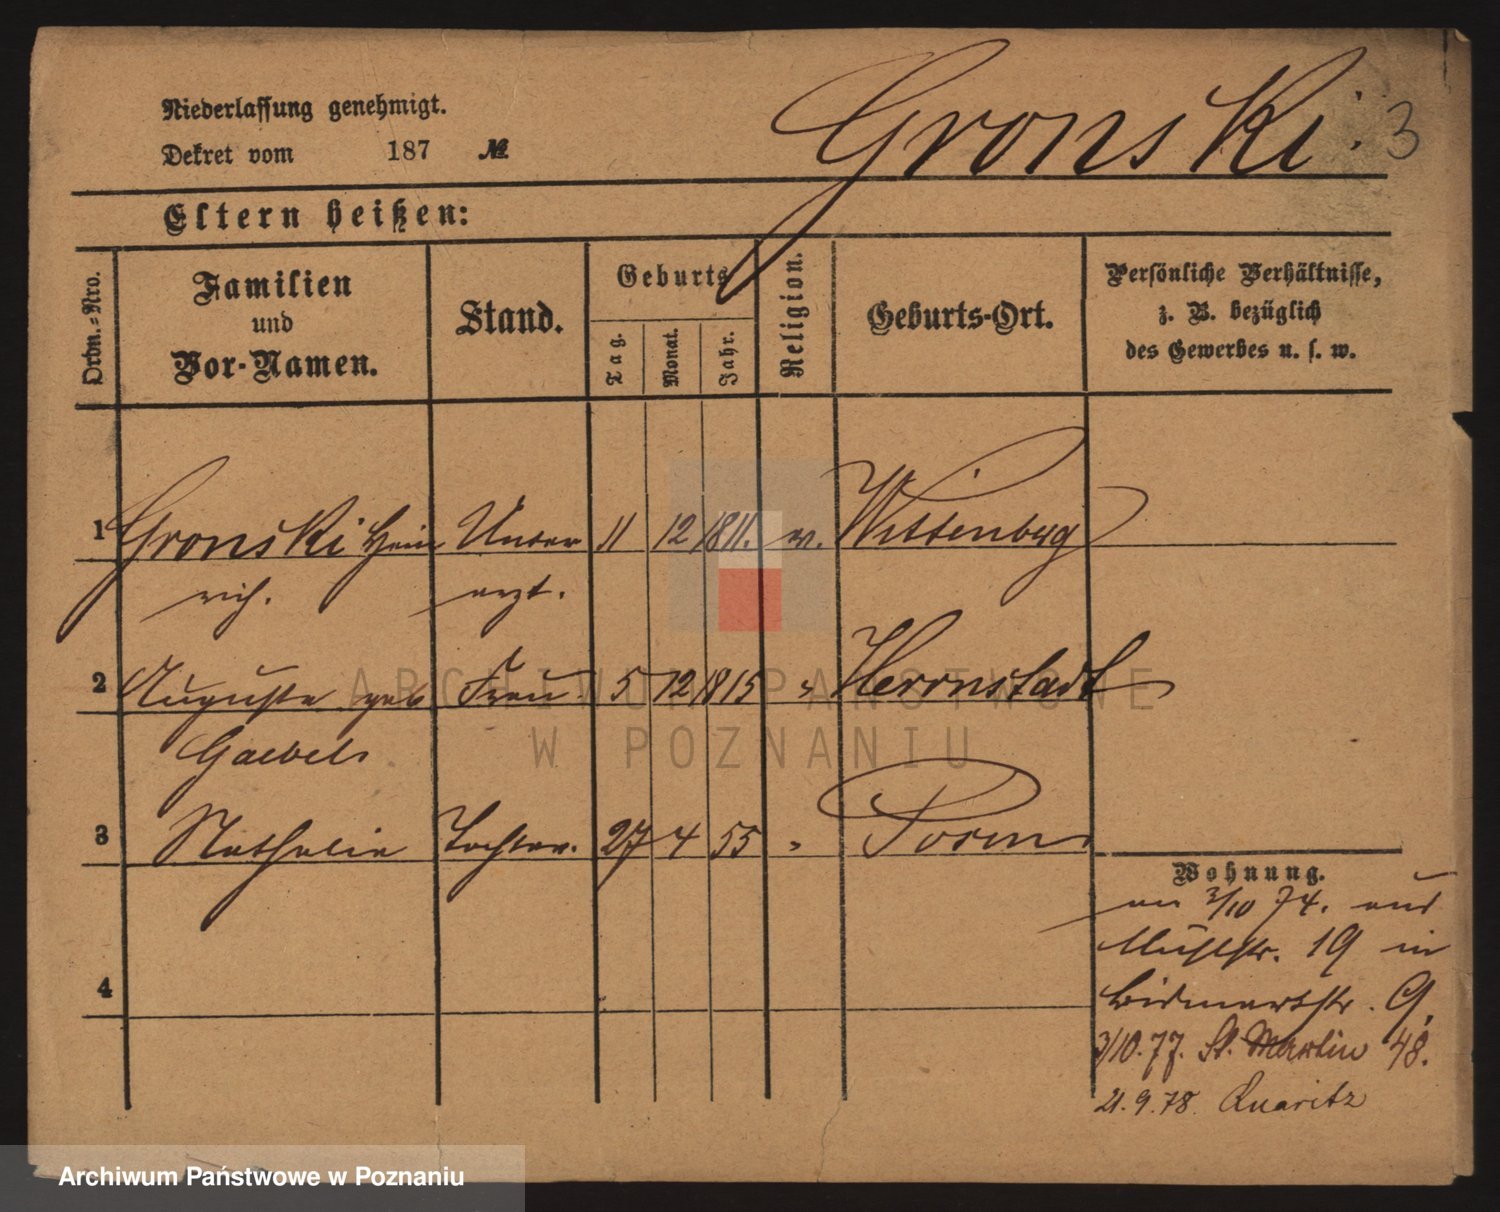 Niederlassung genehmigt.
Dekret vom 187 №
Gronski. 3
Eltern heißen:
Ordn.-Nro.
Familien
und
Vor-Namen.
Stand.
Geburts
Tag.
Monat.
Jahr.
Religion.
Geburts-Ort.
Persönliche Verhältnisse,
z. B. bezüglich
des Gewerbes u. s. w.
1 Gronski Hein Unter 11 12 1811. ev. Wittenberg
rich. arzt.
2 Auguste geb Frau 5 12 1815 " Herrnstadt
Gaebel.
3 Nathalie Tochter. 27 4 55 " Posen
Wohnung.
am 3/10 74. aus
Mühlstr. 19 in
Bismarckstr. 9.
3/10.77. St. Martin 48.
21.9.78. Quaritz
4
ARCHIWUM PAŃSTWOWE
W POZNANIU
Archiwum Państwowe w Poznaniu